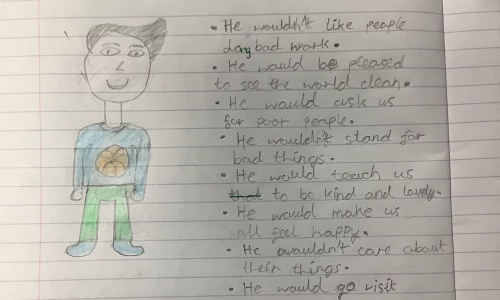 • He wouldn't like people
doing bad work.
• He would be pleased
to see the world clean.
• He would ask us
for poor people.
• He wouldn't stand for
bad things.
• He would teach us
that to be kind and lovely.
• He would make us
all feel happy.
• He wouldn't care about
their things.
• He would go visit